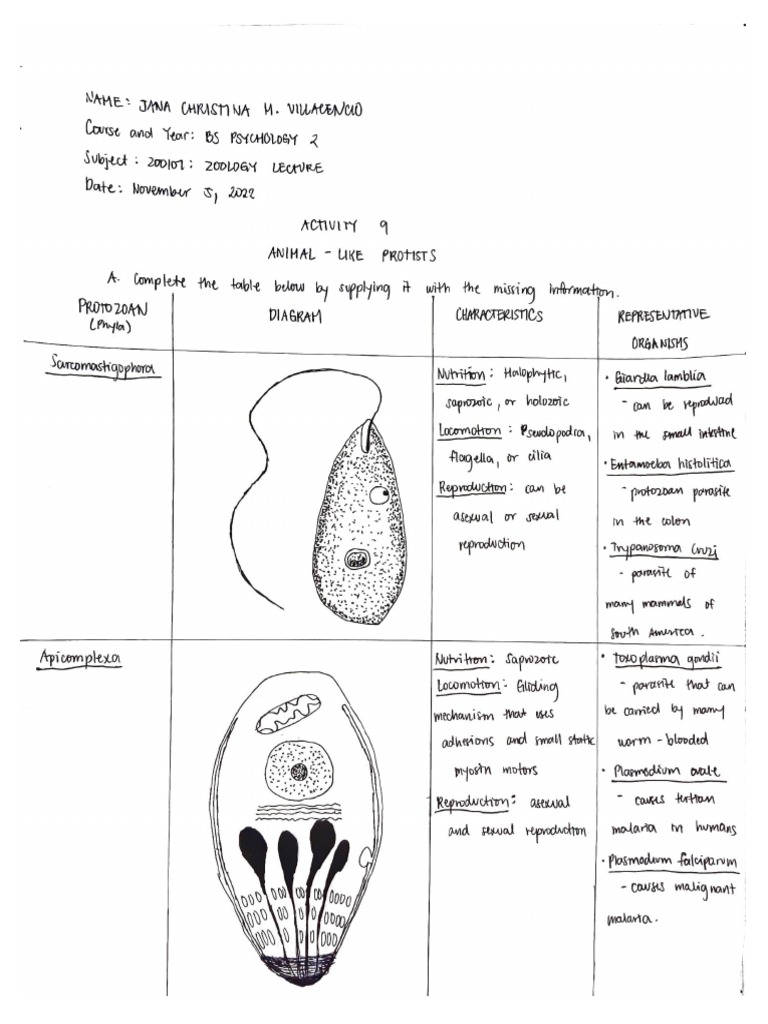 NAME: JANA CHRISTINA M. VILLACENCIO
Course and Year: BS PSYCHOLOGY 2
Subject: ZOO107: ZOOLOGY LECTURE
Date: November 5, 2022
ACTIVITY 9
ANIMAL-LIKE PROTISTS
A. Complete the table below by supplying it with the missing information.
PROTOZOAN
(Phyla)
DIAGRAM
CHARACTERISTICS
REPRESENTATIVE
ORGANISMS
Sarcomastigophora
Nutrition: Halophytic,
saprozoic, or holozoic
Locomotion: Pseudopodia,
flagella, or cilia
Reproduction: can be
asexual or sexual
reproduction
• Giardia lamblia
- can be reproduced
in the small intestine
• Entamoeba histolitica
- protozoan parasite
in the colon
• Trypanosoma Cruzi
- parasite of
many mammals of
South America.
Apicomplexa
Nutrition: Saprozoic
Locomotion: Gliding
mechanism that uses
adhesions and small static
myosin motors
Reproduction: asexual
and sexual reproduction
• Toxoplasma gondii
- parasite that can
be carried by many
worm-blooded
• Plasmodium ovale
- causes tertian
malaria in humans
• Plasmodium falciparum
- causes malignant
malaria.